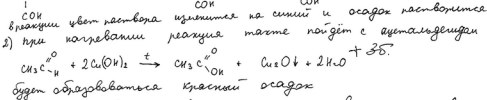 СОН СОН СОН
в реакции цвет раствора изменится на синий и осадок растворится
2) при нагревании реакция также пойдёт с ацетальдегидом
+3б.
CH3C O H + 2Cu(OH)2 t→ CH3C O OH + Cu2O↓ + 2H2O
будет образовываться красный осадок